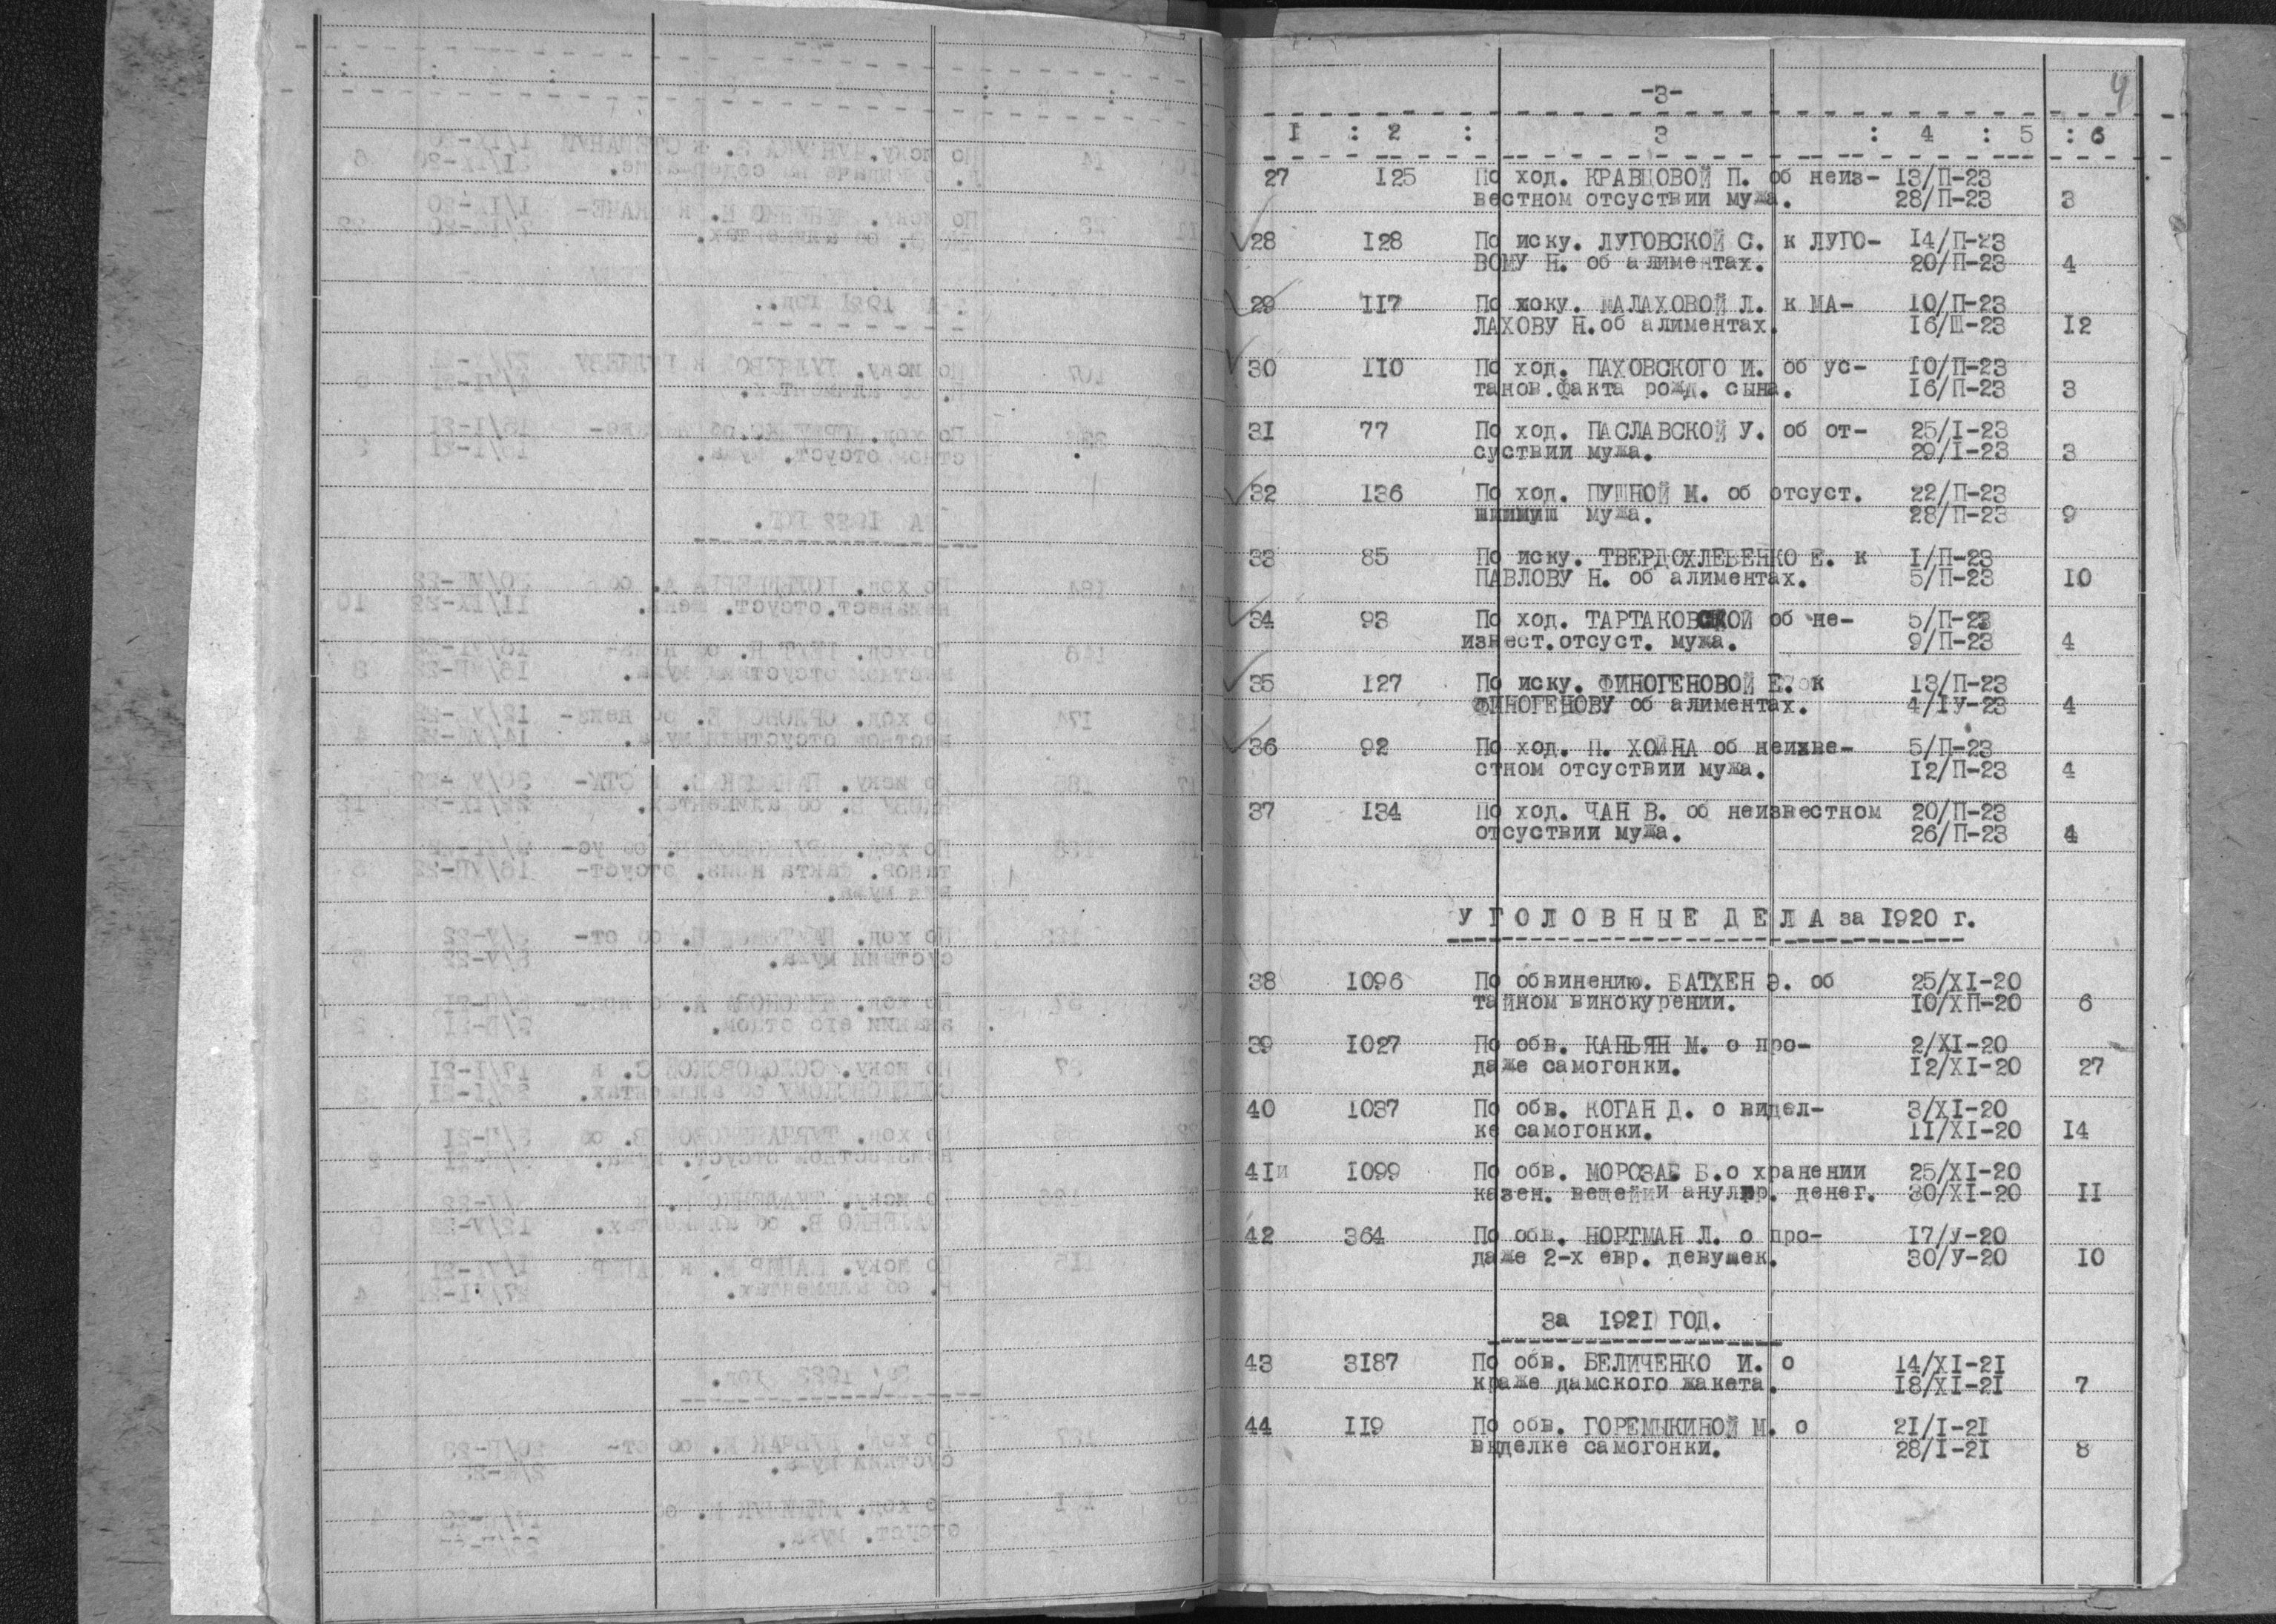 -3-
9
I : 2 : 3 : 4 : 5 : 6
27 I25 По ход. КРАВЦОВОЙ П. об неиз- I3/П-23
вестном отсуствии мужа. 28/П-23 3
28 I28 По иску. ЛУГОВСКОЙ С. к ЛУГО- I4/П-23
ВОМУ Н. об алиментах. 20/П-23 4
29 II7 По иску. МАЛАХОВОЙ Л. к МА- I0/П-23
ЛАХОВУ Н. об алиментах. I6/Ш-23 I2
30 II0 По ход. ПАХОВСКОГО И. об ус- I0/П-23
танов.факта рожд. сына. I6/П-23 3
3I 77 По ход. ПАСЛАВСКОЙ У. об от- 25/I-23
суствии мужа. 29/I-23 3
32 I36 По ход. ПУШНОЙ М. об отсуст. 22/П-23
мужа. 28/П-23 9
33 85 По иску. ТВЕРДОХЛЕБЕНКО Е. к I/П-23
ПАВЛОВУ Н. об алиментах. 5/П-23 I0
34 93 По ход. ТАРТАКОВСКОЙ об не- 5/П-23
извест.отсуст. мужа. 9/П-23 4
35 I27 По иску. ФИНОГЕНОВОЙ Е. к I3/П-23
ФИНОГЕНОВУ об алиментах. 4/IУ-23 4
36 92 По ход. П. ХОЙНА об неизве- 5/П-23
стном отсуствии мужа. I2/П-23 4
37 I34 По ход. ЧАН В. об неизвестном 20/П-23
отсуствии мужа. 26/П-23 4
У Г О Л О В Н Ы Е Д Е Л А за I920 г.
38 I096 По обвинению. БАТХЕН Э. об 25/XI-20
тайном винокурении. I0/XП-20 6
39 I027 По обв. КАНЬЯН М. о про- 2/XI-20
даже самогонки. I2/XI-20 27
40 I037 По обв. КОГАН Д. о видел- 3/XI-20
ке самогонки. II/XI-20 I4
4Iи I099 По обв. МОРОЗАБ Б.о хранении 25/XI-20
казен. вещей и анулир. денег. 30/XI-20 II
42 364 По обв. НОРТМАН Л. о про- I7/У-20
даже 2-х евр. девушек. 30/У-20 I0
За I92I ГОД.
43 3I87 По обв. БЕЛИЧЕНКО И. о I4/XI-2I
краже дамского жакета. I8/XI-2I 7
44 II9 По обв. ГОРЕМЫКИНОЙ М. о 2I/I-2I
виделке самогонки. 28/I-2I 8